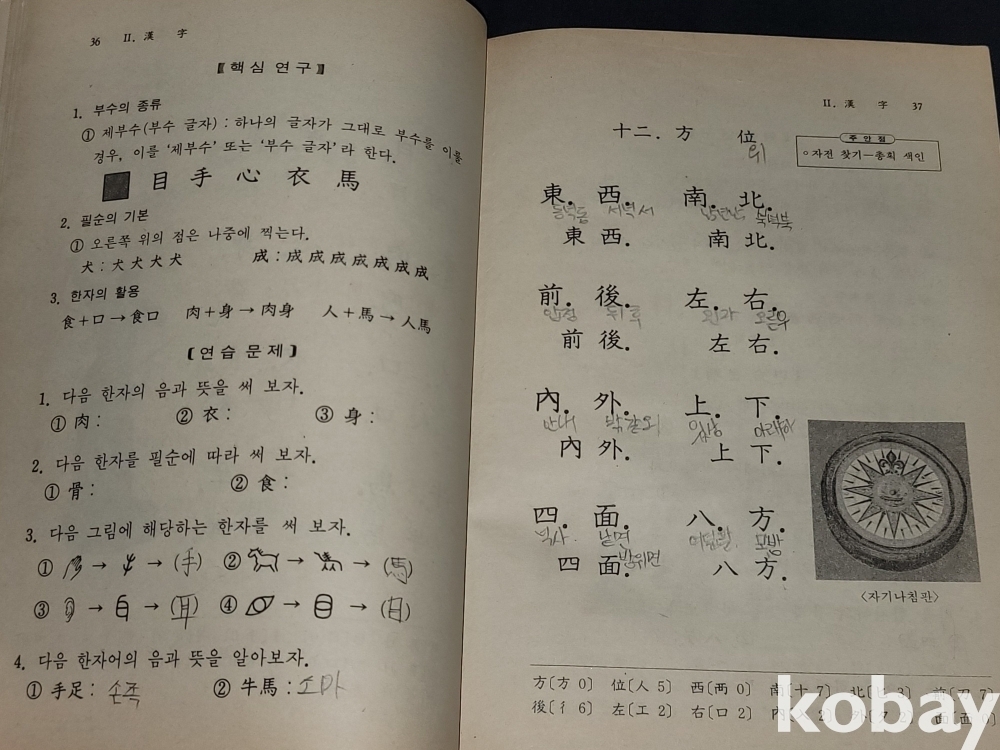 36 II. 漢 字
【핵심 연구】
1. 부수의 종류
① 제부수(부수 글자) : 하나의 글자가 그대로 부수를 이룰
경우, 이를 '제부수' 또는 '부수 글자'라 한다.
目 手 心 衣 馬
2. 필순의 기본
① 오른쪽 위의 점은 나중에 찍는다.
犬 : 犬 犬 犬 犬 成 : 成 成 成 成 成 成 成
3. 한자의 활용
食+口→食口 肉+身→肉身 人+馬→人馬
(연습 문제)
1. 다음 한자의 음과 뜻을 써 보자.
① 肉 : ② 衣 : ③ 身 :
2. 다음 한자를 필순에 따라 써 보자.
① 骨 : ② 食 :
3. 다음 그림에 해당하는 한자를 써 보자.
① → → (手) ② → → (馬)
③ → → (耳) ④ → → (目)
4. 다음 한자어의 음과 뜻을 알아보자.
① 手足 : 손족 ② 牛馬 : 소마
II. 漢 字 37
十二. 方 位
위
주안점
○자전 찾기—총획 색인
東. 西. 南. 北.
동녘동 서녘서 북녘북
東 西. 南 北.
前. 後. 左. 右.
뒤후 왼좌 오른우
前 後. 左 右.
內. 外. 上. 下.
안내 밖같외 위상 아래하
內 外. 上 下.
四. 面. 八. 方.
넉사 낯면 여덟팔 모방
四 面. 八 方.
방위면
〈자기나침판〉
方〔方 0〕 位〔人 5〕 西〔襾 0〕 南〔十 7〕 北〔匕 3〕 前〔刀 7〕
後〔彳 6〕 左〔工 2〕 右〔口 2〕 內 2〕 外〔夕 2〕 面〔面 0〕
kobay